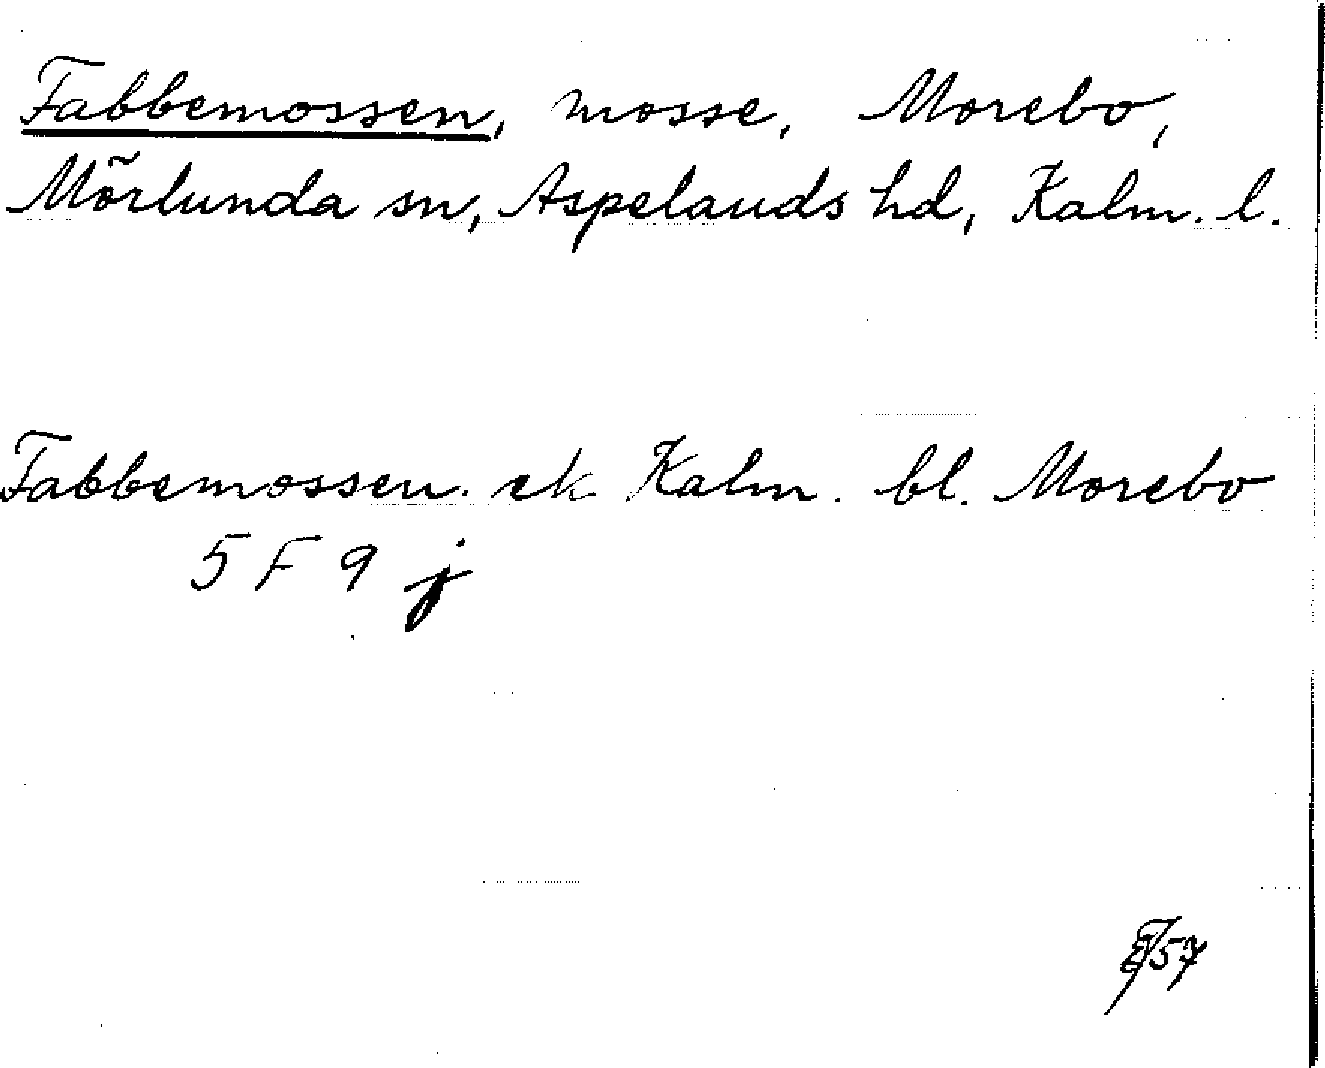 Fabbemossen, mosse, Morebo,
Mörlunda sn, Aspelands hd, Kalm. l.
Fabbemossen. ek Kalm. bl. Morebo
5 F 9 j
57